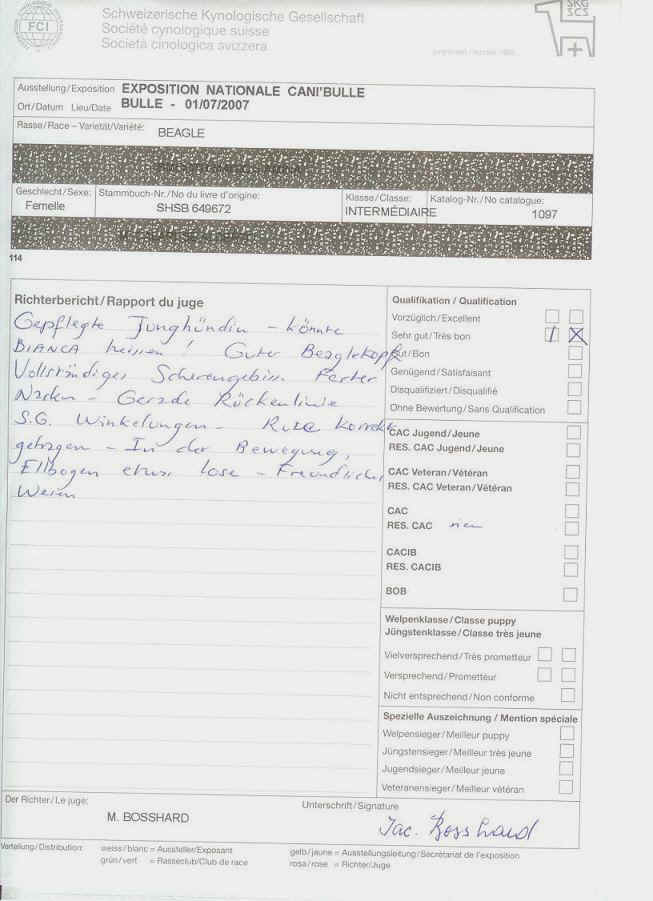 FCI
Schweizerische Kynologische Gesellschaft
Société cynologique suisse
Società cinologica svizzera
SKG
SCS
Ausstellung/Exposition EXPOSITION NATIONALE CANI'BULLE
Ort/Datum Lieu/Date BULLE - 01/07/2007
Rasse/Race – Varietät/Variété: BEAGLE
Geschlecht/Sexe: Stammbuch-Nr./No du livre d'origine: Klasse/Classe: Katalog-Nr./No catalogue:
Femelle SHSB 649672 INTERMÉDIAIRE 1097
114
Richterbericht/Rapport du juge
Gepflegte Junghündin – könnte
BIANCA heissen! Guter Beaglekopf
Vollständiges Scherengebiss Fester
Rücken – Gerade Rückenlinie
S.G. Winkelungen – Rute korrekt
getragen – In der Bewegung,
Ellbogen etwas lose – Freundliches
Wesen
Qualifikation / Qualification
Vorzüglich/Excellent
Sehr gut/Très bon 1 X
Gut/Bon
Genügend/Satisfaisant
Disqualifiziert/Disqualifié
Ohne Bewertung/Sans Qualification
CAC Jugend/Jeune
RES. CAC Jugend/Jeune
CAC Veteran/Vétéran
RES. CAC Veteran/Vétéran
CAC
RES. CAC rien
CACIB
RES. CACIB
BOB
Welpenklasse/Classe puppy
Jüngstenklasse/Classe très jeune
Vielversprechend/Très prometteur
Versprechend/Prometteur
Nicht entsprechend/Non conforme
Spezielle Auszeichnung / Mention spéciale
Welpensieger/Meilleur puppy
Jüngstensieger/Meilleur très jeune
Jugendsieger/Meilleur jeune
Veteranensieger/Meilleur vétéran
Der Richter/Le juge: Unterschrift/Signature
M. BOSSHARD Jac. Bosshard
Verteilung/Distribution: weiss/blanc = Aussteller/Exposant gelb/jaune = Ausstellungsleitung/Secrétariat de l'exposition
grün/vert = Rasseclub/Club de race rosa/rose = Richter/Juge